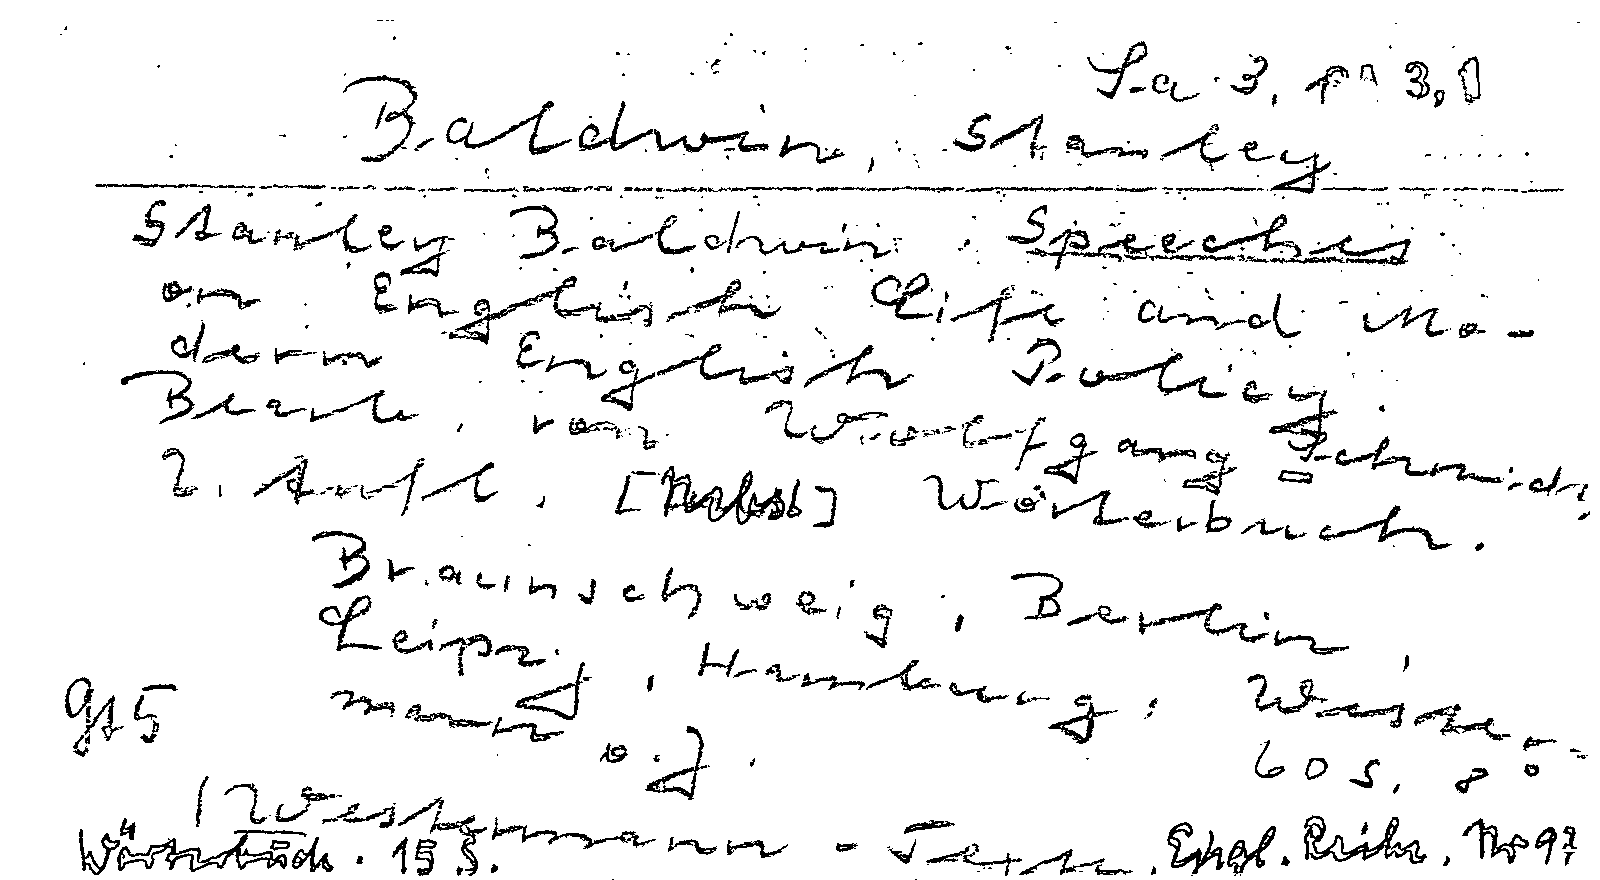 Sa 3, 3,1
Baldwin, Stanley
Stanley Baldwin. Speeches
on English Life and Mo-
dern English Policy.
Bearb. von Wolfgang Schmidt,
2. Aufl. [Nebst] Wörterbuch.
Braunschweig, Berlin,
Leipzig, Hamburg: Wester-
mann o. J.
60 S. 8°
(Westermann-Texte, Engl. Reihe, Nr 97
Wörterbuch. 15 S.